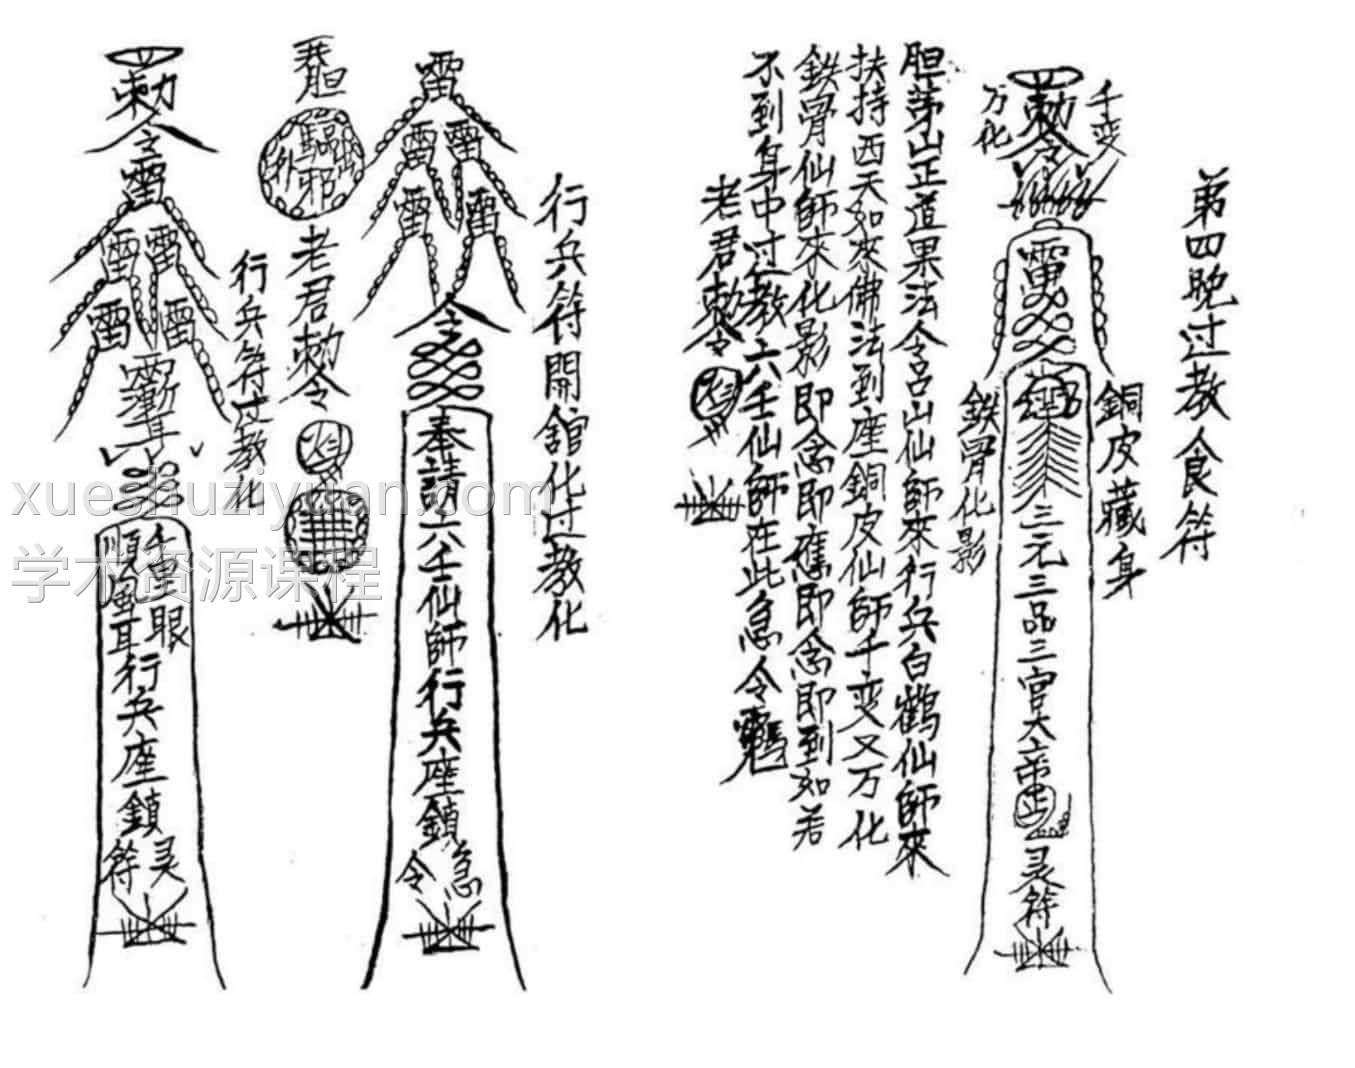 第四晚过教食符
千变
万化
勅令
雷
銅皮藏身
鉄骨化影
三元三品三官大帝
灵符
胆茅山正道果法令吕山仙師來行兵白鶴仙師來
扶持西天如來佛法到座銅皮仙師千变又万化
鉄骨仙師來化影即念即應即念即到如若
不到身中过教六壬仙師在此急令
老君勅令
行兵符開舘化过教化
雷
雷雷
雷雷
令
奉請六壬仙師行兵座鎮
急
令
胆
驅邪
老君勅令
行兵符过教化
勅令
雷
雷雷
雷雷
千里眼
順風耳
行兵座鎮
灵符
xueshuziyuan.com
学术资源课程